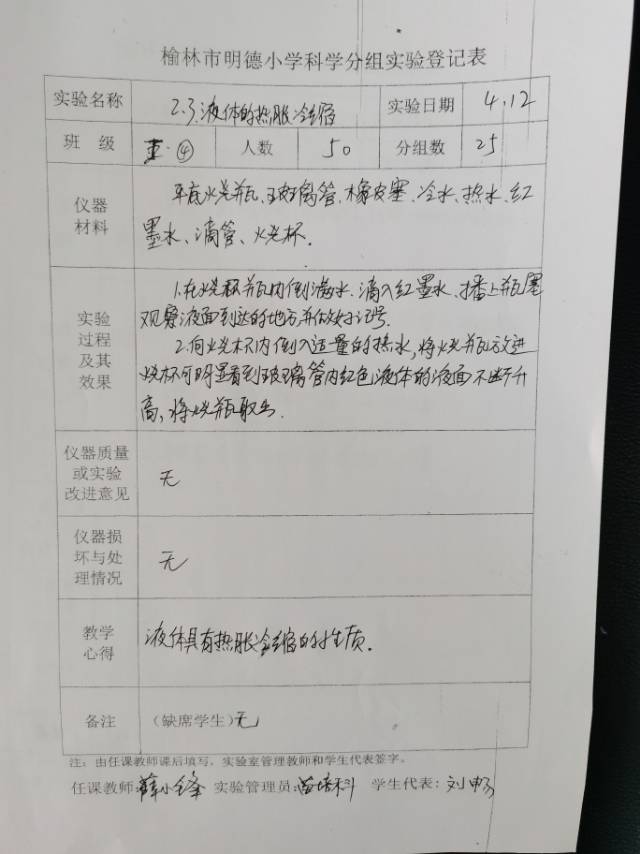 榆林市明德小学科学分组实验登记表
实验名称 2.3.液体的热胀冷缩 实验日期 4.12
班 级 ④ 人数 50 分组数 25
仪器材料 平底火烧瓶、玻璃管、橡皮塞、冷水、热水、红
墨水、滴管、火烧杯.
实验过程及其效果 1.在火烧瓶内倒满水、滴入红墨水、插上瓶塞
观察液面到达的地方,并做好记号.
2.向火烧杯内倒入适量的热水,将火烧瓶放进
烧杯可明显看到玻璃管内红色液体的液面不断升
高,将烧瓶取出.
仪器质量或实验改进意见 无
仪器损坏与处理情况 无
教学心得 液体具有热胀冷缩的性质.
备注 (缺席学生)无
注:由任课教师课后填写,实验室管理教师和学生代表签字。
任课教师:薛小锋 实验管理员:苗培科 学生代表:刘畅